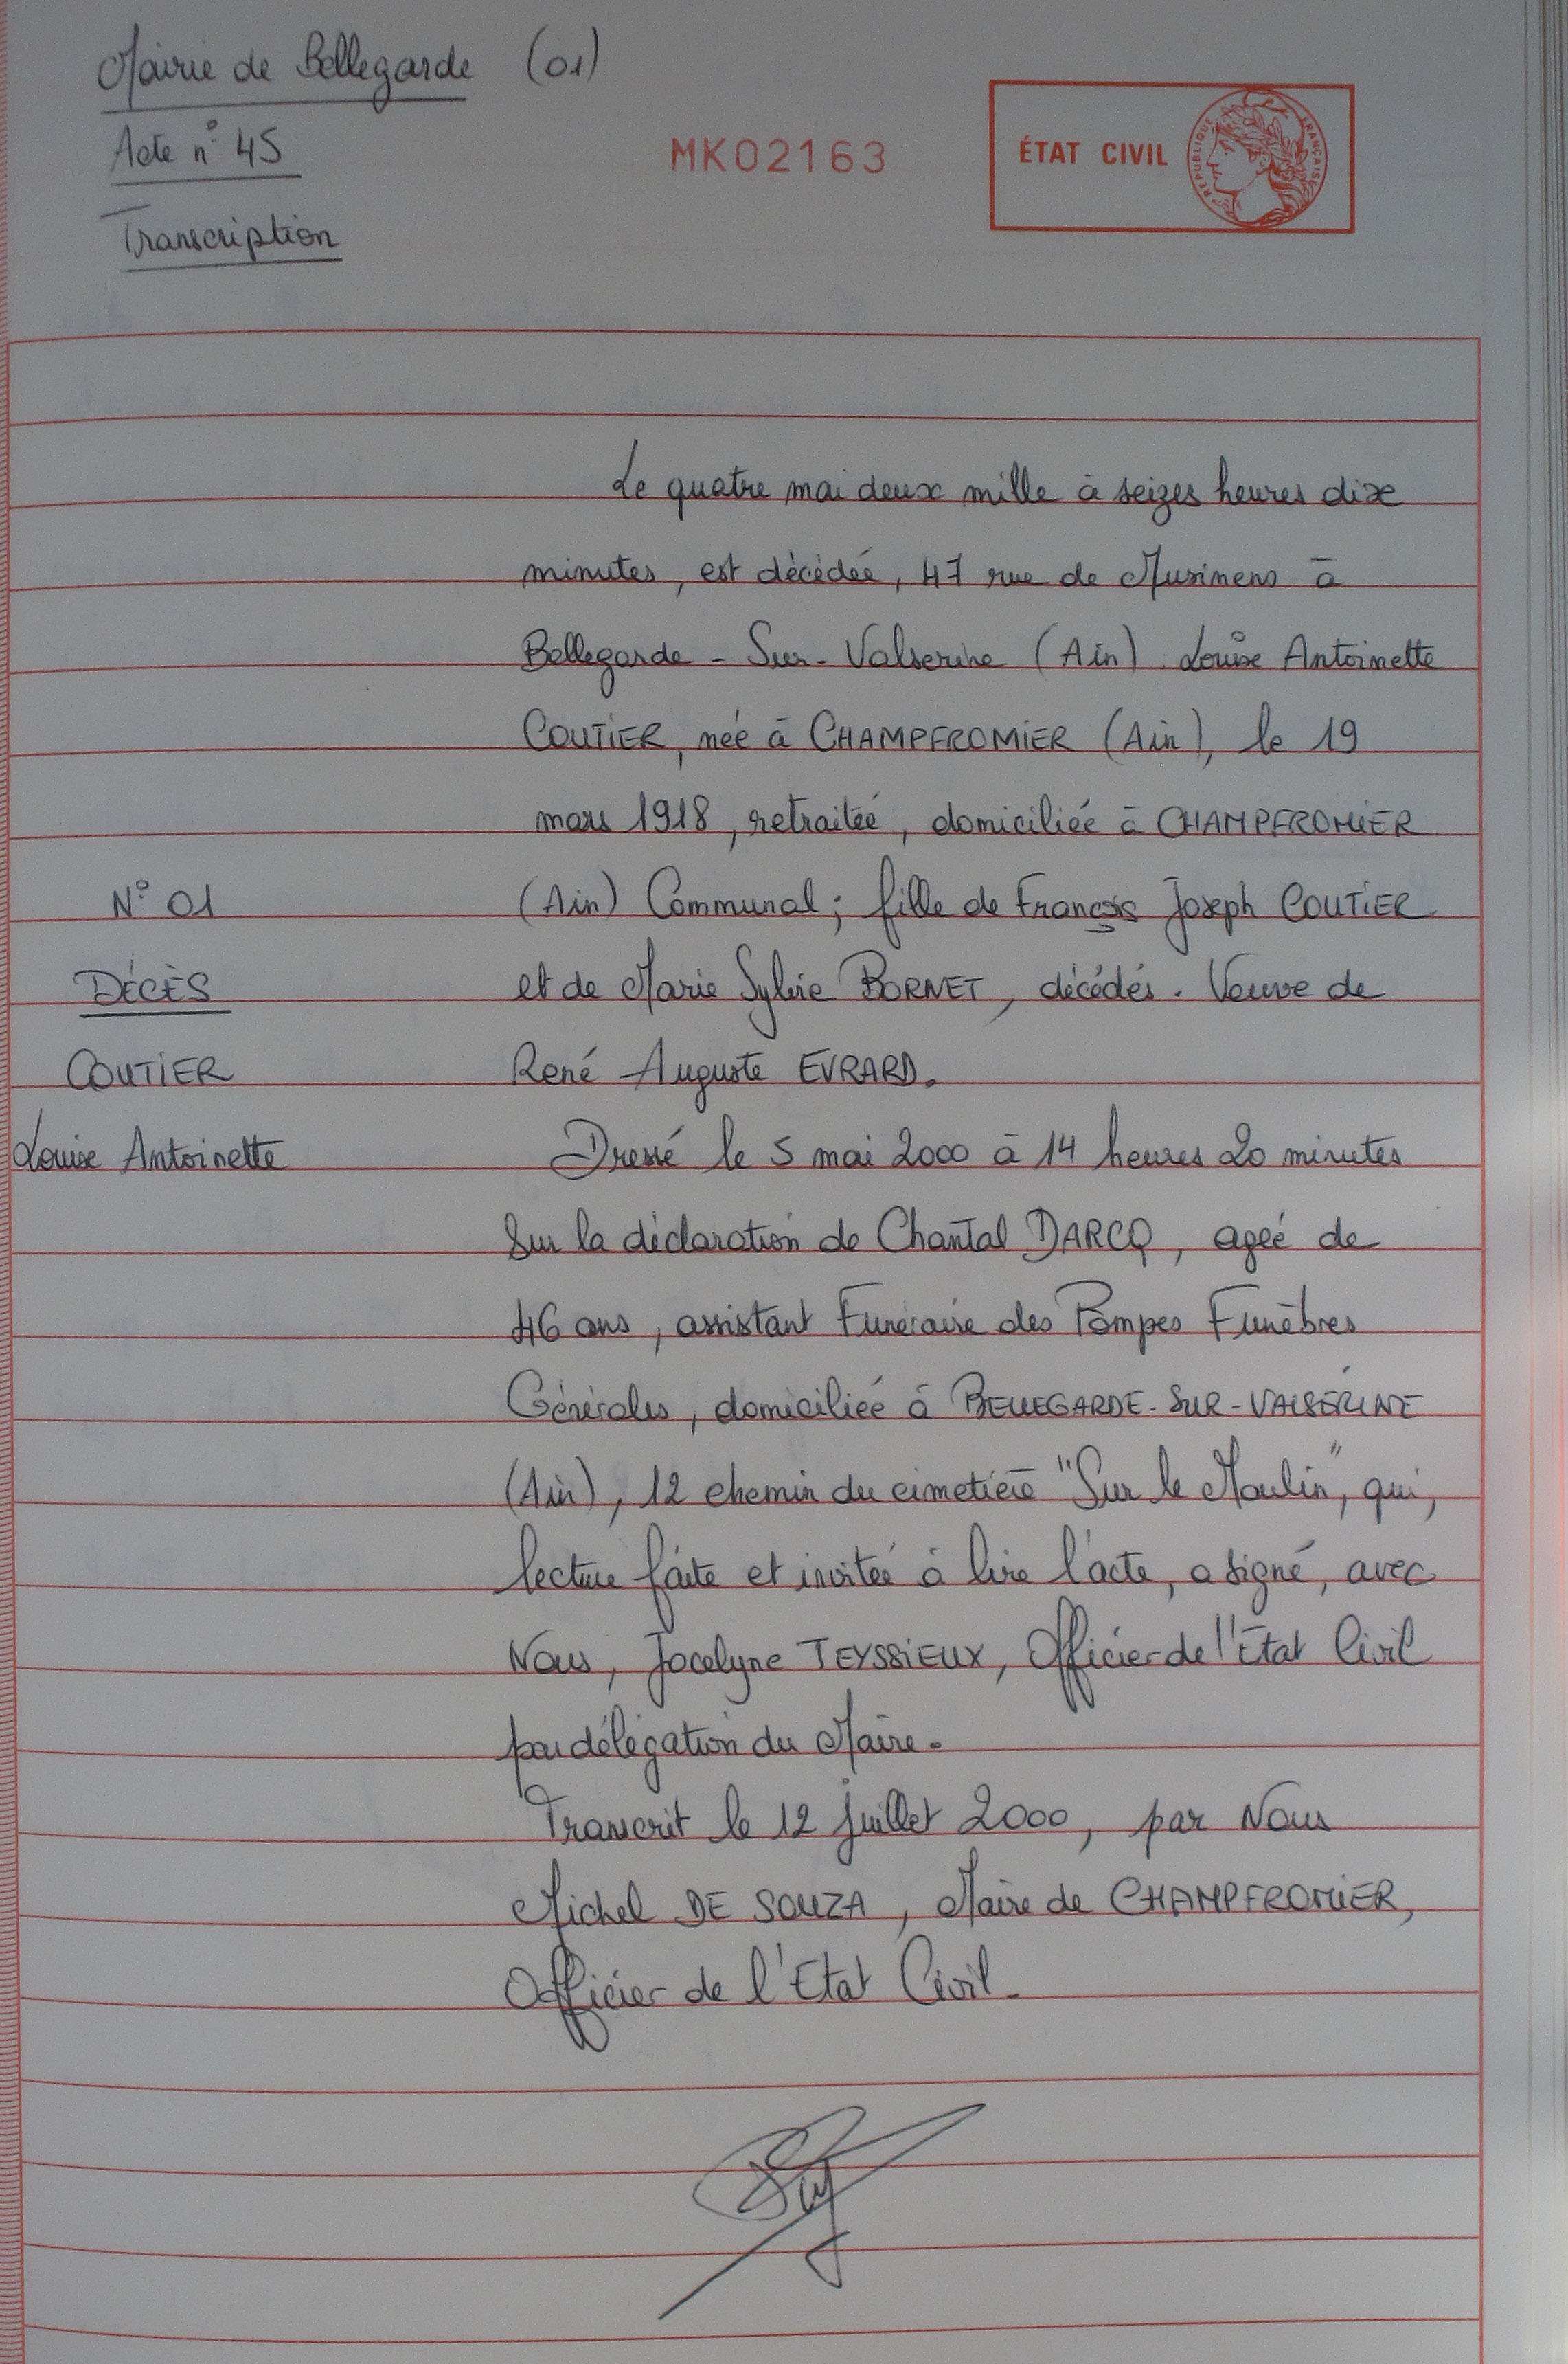 Mairie de Bellegarde (01)
Acte n° 45
MK02163
ÉTAT CIVIL
RÉPUBLIQUE FRANÇAISE
Transcription
Le quatre mai deux mille à seizes heures dix
minutes, est décédée, 47 rue de Musinens à
Bellegarde - Sur - Valserine (Ain) Louise Antoinette
COUTIER, née à CHAMPFROMIER (Ain), le 19
mars 1918, retraitée, domiciliée à CHAMPFROMIER
N° 01
(Ain) Communal ; fille de François Joseph COUTIER
DÉCÈS
et de Marie Sylvie BORNET, décédés. Veuve de
COUTIER
René Auguste EVRARD.
Louise Antoinette
Dressé le 5 mai 2000 à 14 heures 20 minutes
Sur la déclaration de Chantal DARCQ, ageé de
46 ans, assistant Funéraire des Pompes Funèbres
Générales, domiciliée à BELLEGARDE - SUR - VALSERINE
(Ain), 12 chemin du cimetière "Sur le Moulin", qui,
lecture faite et invitée à lire l'acte, a signé, avec
Nous, Jocelyne TEYSSIEUX, Officier de l'Etat Civil
par délégation du Maire.
Transcrit le 12 juillet 2000, par Nous
Michel DE SOUZA, Maire de CHAMPFROMIER,
Officier de l'Etat Civil.